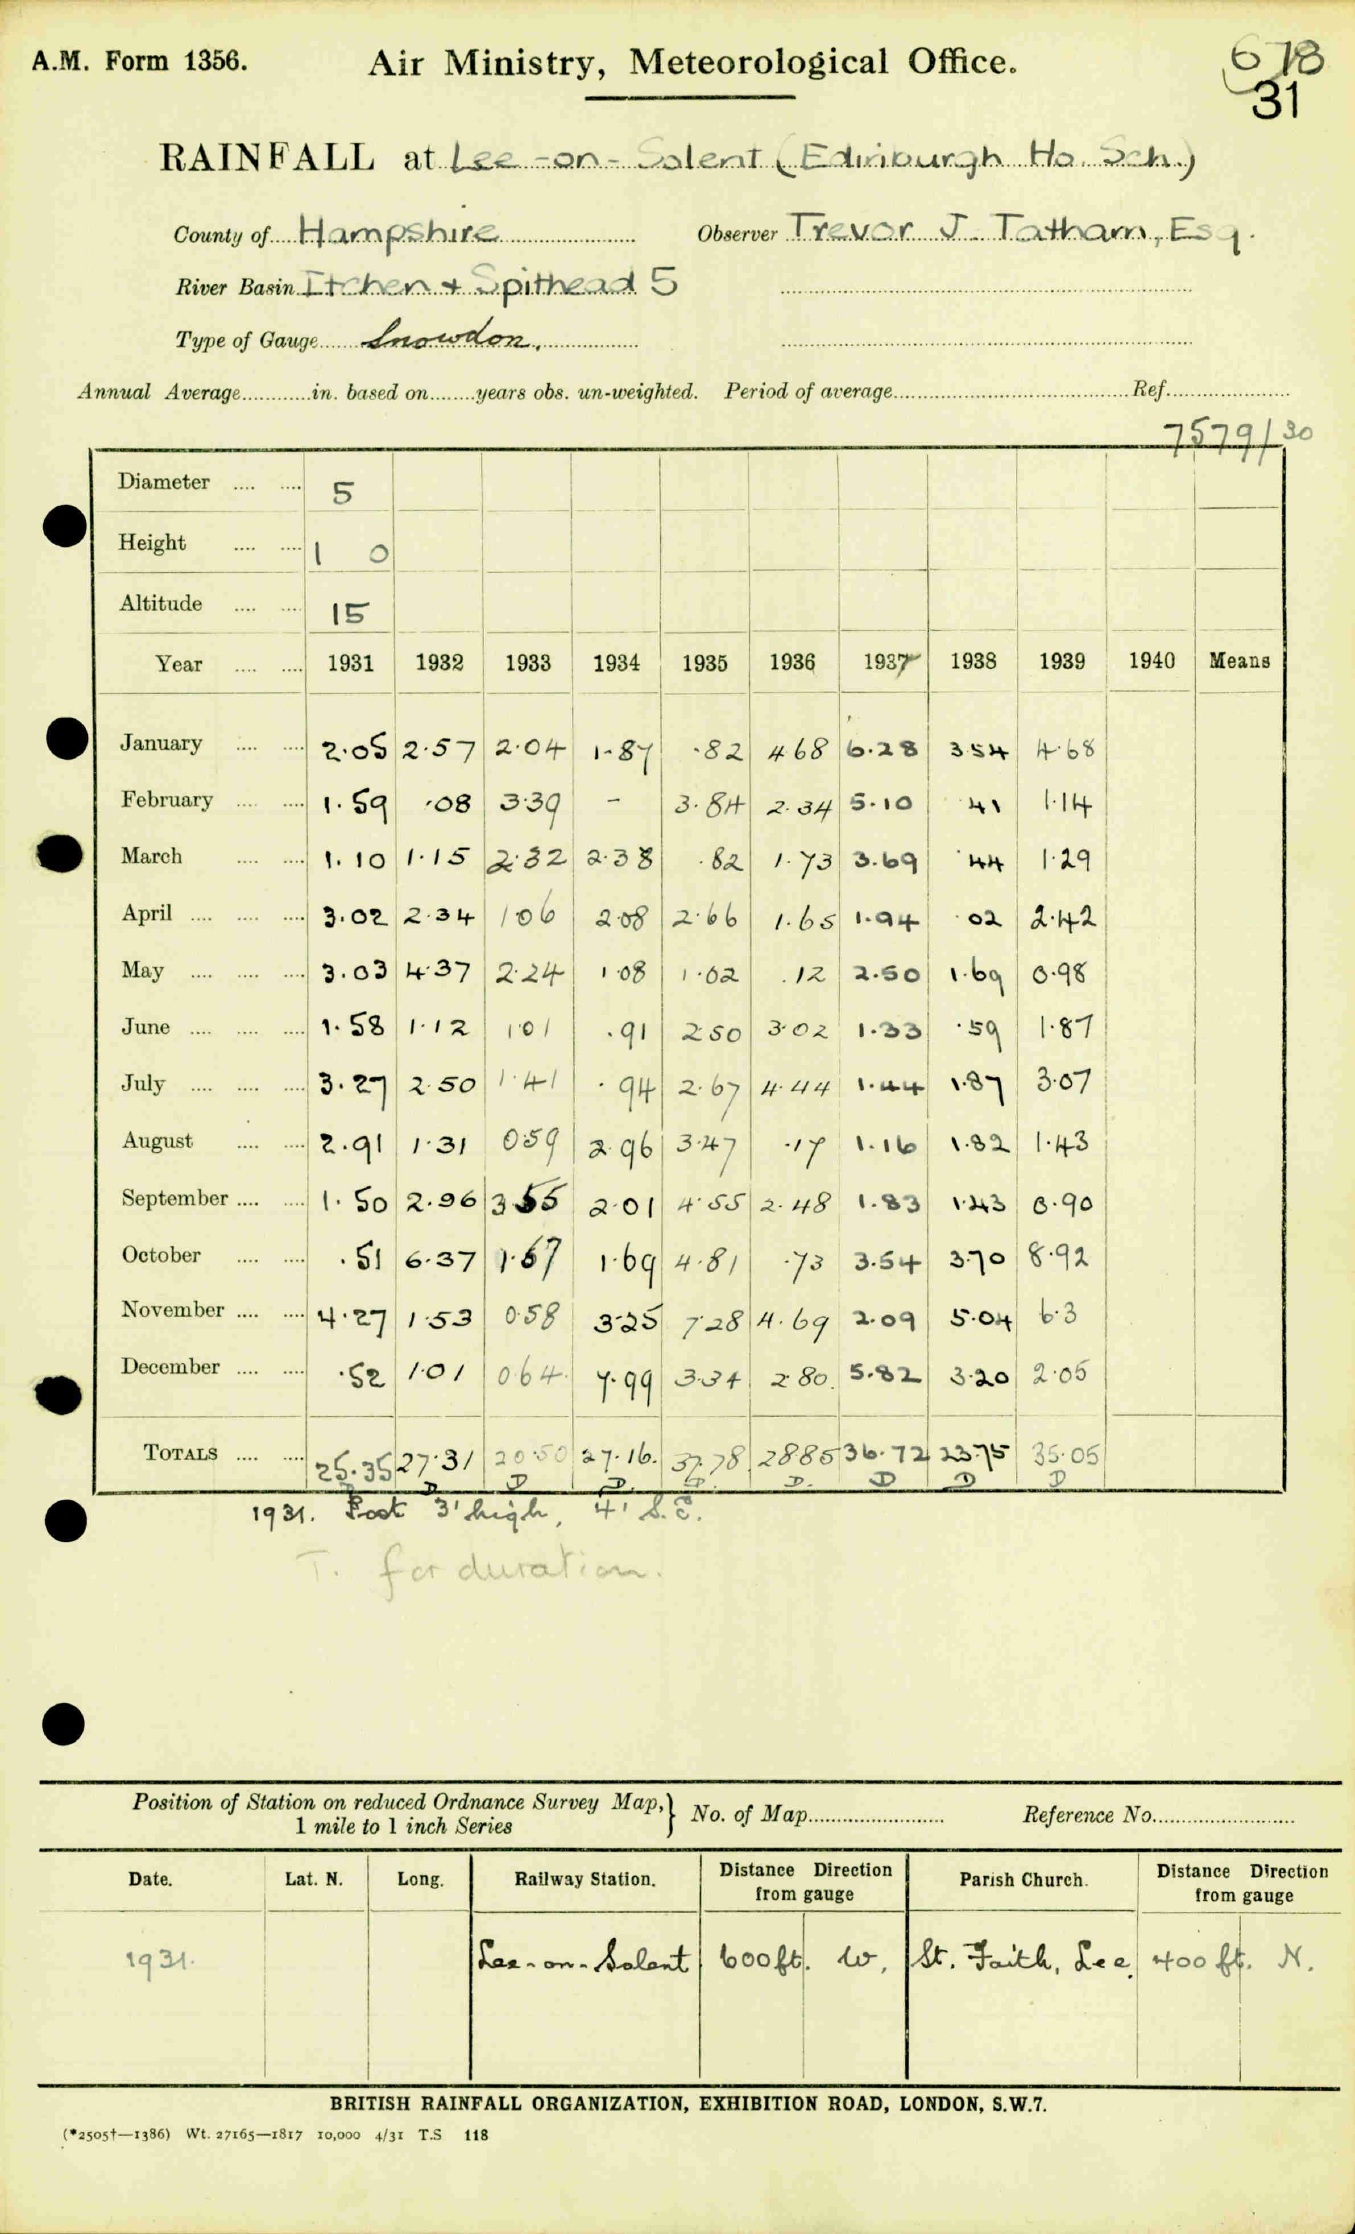 A.M. Form 1356.
Air Ministry, Meteorological Office.
678
31
RAINFALL at Lee-on-Solent (Edinburgh Ho. Sch.)
County of Hampshire Observer Trevor J. Tatham, Esq.
River Basin Itchen + Spithead 5
Type of Gauge Snowdon.
Annual Average in. based on years obs. un-weighted. Period of average Ref.
7579/30
Diameter 5
Height 1 0
Altitude 15
Year 1931 1932 1933 1934 1935 1936 1937 1938 1939 1940 Means
January 2.05 2.57 2.04 1.87 .82 4.68 6.28 3.54 4.68
February 1.59 .08 3.39 - 3.84 2.34 5.10 .41 1.14
March 1.10 1.15 2.32 2.38 .82 1.73 3.69 .44 1.29
April 3.02 2.34 1.06 2.08 2.66 1.65 1.94 .02 2.42
May 3.03 4.37 2.24 1.08 1.02 .12 2.50 1.69 0.98
June 1.58 1.12 1.01 .91 2.50 3.02 1.33 .59 1.87
July 3.27 2.50 1.41 .94 2.67 4.44 1.44 1.87 3.07
August 2.91 1.31 0.59 2.96 3.47 .17 1.16 1.82 1.43
September 1.50 2.96 3.55 2.01 4.55 2.48 1.83 1.43 0.90
October .51 6.37 1.67 1.69 4.81 .73 3.54 3.70 8.92
November 4.27 1.53 0.58 3.25 7.28 4.69 2.09 5.04 6.3
December .52 1.01 0.64 7.99 3.34 2.80 5.82 3.20 2.05
TOTALS 25.35 27.31 20.50 27.16 37.78 28.85 36.72 23.75 35.05
D D D D D D D D D
1931. Post 3' high, 4' S.E.
T. for duration.
Position of Station on reduced Ordnance Survey Map,
1 mile to 1 inch Series
No. of Map Reference No.
Date. Lat. N. Long. Railway Station. Distance Direction from gauge Parish Church. Distance Direction from gauge
1931. Lee-on-Solent 600 ft. W. St. Faith, Lee. 400 ft. N.
BRITISH RAINFALL ORGANIZATION, EXHIBITION ROAD, LONDON, S.W.7.
(*2505†—1386) Wt. 27165—1817 10,000 4/31 T.S 118